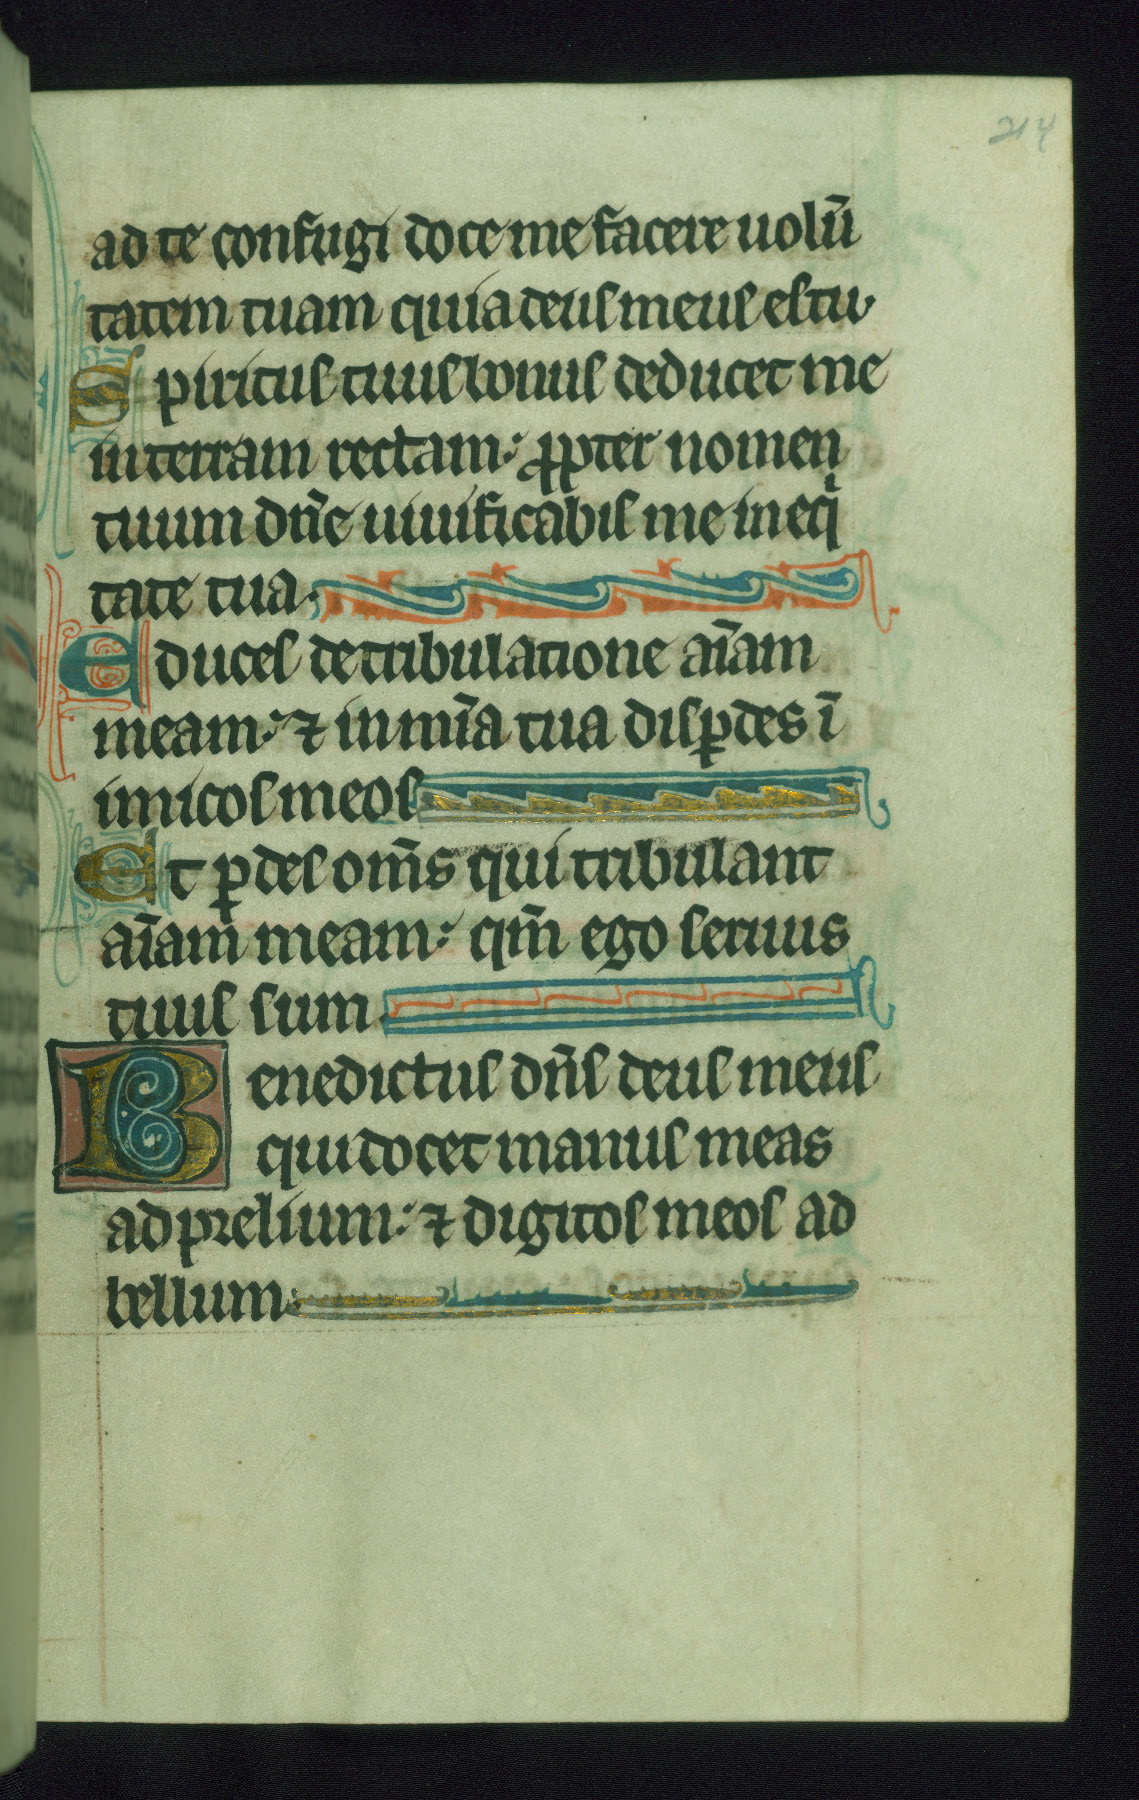 214
ad te confugi doce me facere uolū
tatem tuam quia deus meus es tu.
Spiritus tuus bonus deducet me
in terram rectam: ꝓpter nomen
tuum dn̄e uiuificabis me in eq̄
tate tua.
Educes de tribulatione aīam
meam: ⁊ in mīa tua disꝑdes ī
imicos meos
Et ꝑdes om̄s qui tribulant
aīam meam: qm̄ ego seruus
tuus sum
Benedictus dn̄s deus meus
qui docet manus meas
ad prelium: ⁊ digitos meos ad
bellum.